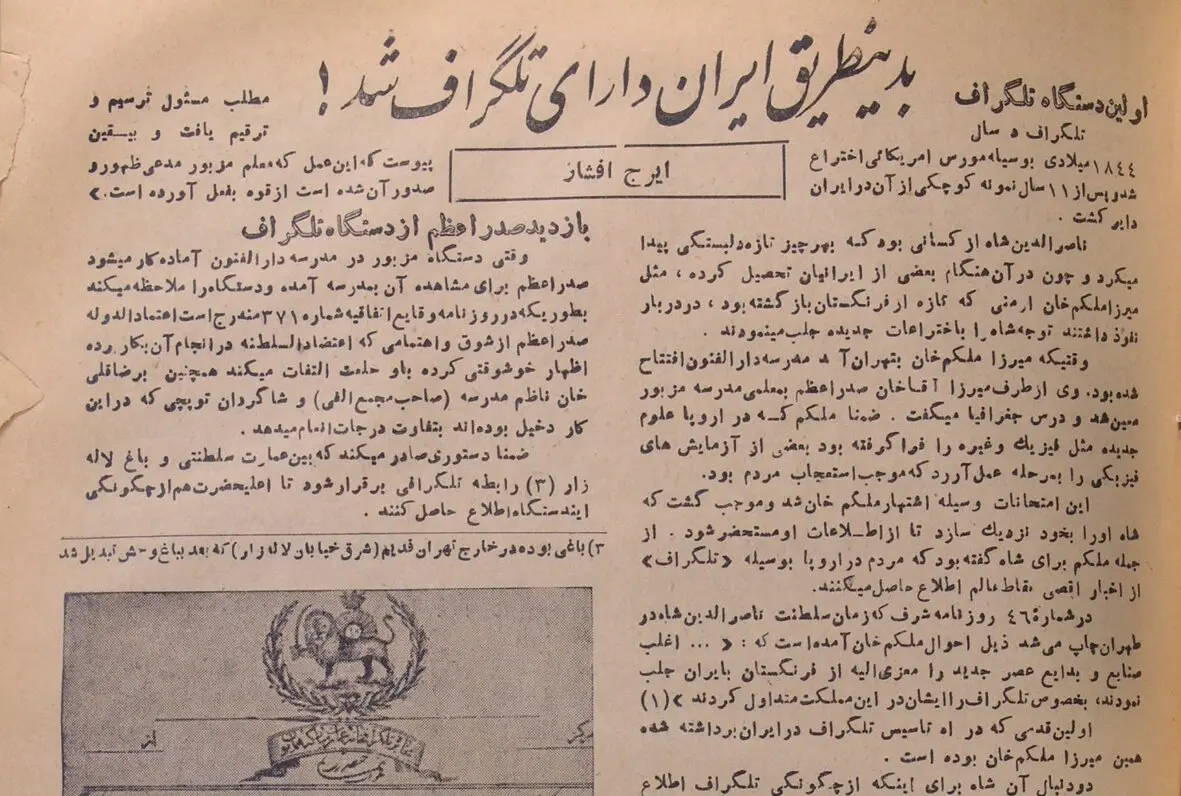 بدینطریق ایران دارای تلگراف شد!
ایرج افشار
اولین دستگاه تلگراف
تلگراف د سال
۱۸٤٤ میلادی بوسیله مورس امریکائی اختراع
شد و پس از ۱۱ سال نمونه کوچکی از آن در ایران
دایر گشت .
ناصرالدین شاه از کسانی بود که بهر چیز تازه دلبستگی پیدا
میکرد و چون در آن هنگام بعضی از ایرانیان تحصیل کرده ، مثل
میرزا ملکم خان ارمنی که تازه از فرنگستان بازگشته بود ، در دربار
نفوذ داشتند توجه شاه را باختراعات جدیده جلب مینمودند .
وقتیکه میرزا ملکم خان بتهران آمد مدرسه دارالفنون افتتاح
شده بود. وی از طرف میرزا آقاخان صدراعظم بمعلمی مدرسه مزبور
معین شد و درس جغرافیا میگفت . ضمنا ملکم که در اروپا علوم
جدیده مثل فیزیك وغیره را فرا گرفته بود بعضی از آزمایش های
فیزیکی را بمرحله عمل آورد که موجب استعجاب مردم بود.
این امتحانات وسیله اشتهار ملکم خان شد و موجب گشت که
شاه اورا بخود نزدیك سازد تا از اطلاعات او مستحضر شود . از
جمله ملکم برای شاه گفته بود که مردم در اروپا بوسیله «تلگراف»
از اخبار اقصی نقاط عالم اطلاع حاصل میکنند.
در شمارهٔ ٤٦ روزنامه شرف که زمان سلطنت ناصرالدین شاه در
طهران چاپ می شد ذیل احوال ملکم خان آمده است که : « ... اغلب
صنایع و بدایع عصر جدید را معزی الیه از فرنگستان بایران جلب
نمودند، بخصوص تلگراف را ایشان در این مملکت متداول کردند » (۱)
اولین قدمی که در اه تاسیس تلگراف در ایران برداشته شده
همین میرزا ملکم خان بوده است .
دودنبال آن شاه برای اینکه از چگونگی تلگراف اطلاع
مطلب مسئول ترسیم و
ترقیم یافت و بیقین
پیوست که این عمل که معلم مزبور مدعی ظهور و
صدور آن شده است از قوه بفعل آورده است.»
بازدید صدراعظم از دستگاه تلگراف
وقتی دستگاه مزبور در مدرسه دارالفنون آماده کار میشود
صدراعظم برای مشاهده آن بمدرسه آمده و دستگاه را ملاحظه میکند
بطوریکه در روزنامه وقایع اتفاقیه شماره ۳۷۱ مندرج است اعتمادالدوله
صدراعظم از شوق و اهتمامی که اعتضادالسلطنه در انجام آن بکار برده
اظهار خوشوقتی کرده باو خلعت التفات میکند همچنین برضاقلی
خان ناظم مدرسه (صاحب مجمع الفی) و شاگردان توپچی که در این
کار دخیل بوده اند بتفاوت درجات انعام میدهد .
ضمنا دستوری صادر میکند که بین عمارت سلطنتی و باغ لاله
زار (۳) رابطه تلگرافی برقرار شود تا اعلیحضرت هم از چگونگی
ایندستگاه اطلاع حاصل کنند .
۳) باغی بوده در خارج تهران قدیم (شرق خیابان لاله زار) که بعد بباغ وحش تبدیل شد
از
مرکز